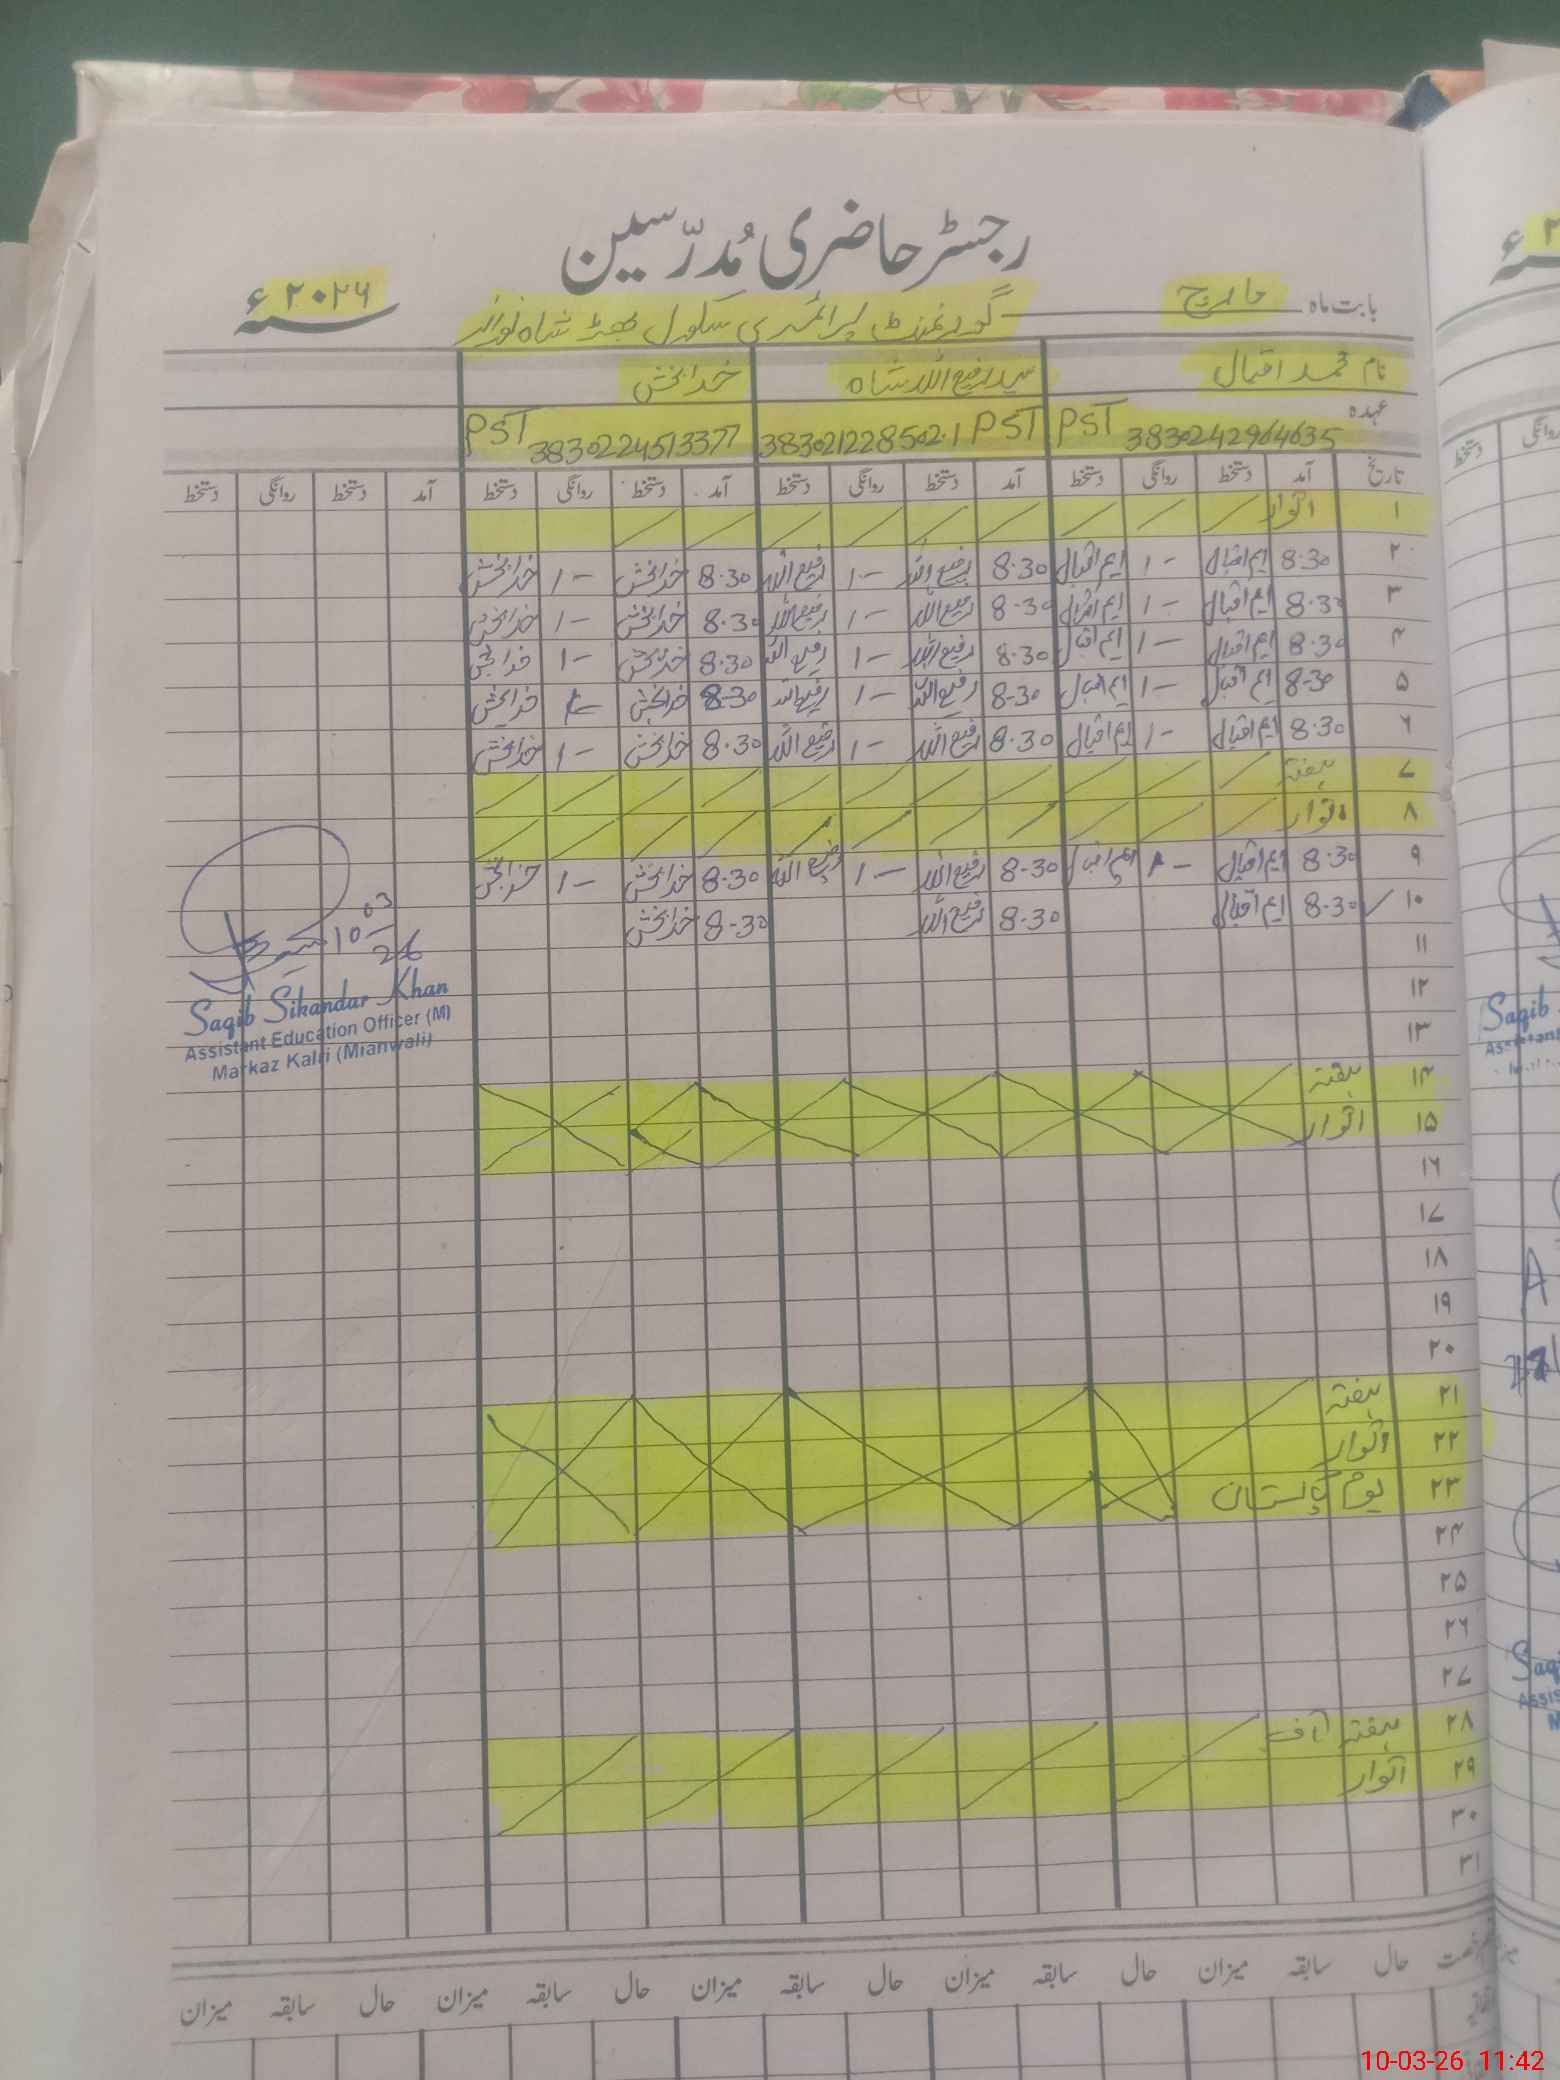 رجسٹر حاضری مُدرّسین
بابت ماہ مارچ گورنمنٹ پرائمری سکول بھڑ شاہ نواز سنہ ۲۰۲۶ ء
نام محمد اقبال سید رفیع اللہ شاہ خدا بخش
عہدہ PST 3830242964635 PST 3830212285021 PST 3830224513377
تاریخ آمد دستخط روانگی دستخط آمد دستخط روانگی دستخط آمد دستخط روانگی دستخط آمد دستخط روانگی دستخط
۱ اتوار
۲ 8.30 ایم اقبال 1- ایم اقبال 8.30 رفیع اللہ 1- رفیع اللہ 8.30 خدا بخش 1- خدا بخش
۳ 8.30 ایم اقبال 1- ایم اقبال 8-30 رفیع اللہ 1- رفیع اللہ 8.30 خدا بخش 1- خدا بخش
۴ 8.30 ایم اقبال 1- ایم اقبال 8.30 رفیع اللہ 1- رفیع اللہ 8.30 خدا بخش 1- خدا بخش
۵ 8-30 ایم اقبال 1- ایم اقبال 8-30 رفیع اللہ 1- رفیع اللہ 8-30 خدا بخش 1- خدا بخش
۶ 8.30 ایم اقبال 1- ایم اقبال 8.30 رفیع اللہ 1- رفیع اللہ 8.30 خدا بخش 1- خدا بخش
۷ ہفتہ
۸ اتوار
۹ 8.30 ایم اقبال 1- ایم اقبال 8-30 رفیع اللہ 1- رفیع اللہ 8.30 خدا بخش 1- خدا بخش
۱۰ 8.30 ایم اقبال 8.30 رفیع اللہ 8-30 خدا بخش
10-03-26
Saqib Sikandar Khan
Assistant Education Officer (M)
Markaz Kalri (Mianwali)
۱۱
۱۲
۱۳
۱۴ ہفتہ
۱۵ اتوار
۱۶
۱۷
۱۸
۱۹
۲۰
۲۱ ہفتہ
۲۲ اتوار
۲۳ یوم پاکستان
۲۴
۲۵
۲۶
۲۷
۲۸ ہفتہ
۲۹ اتوار
۳۰
۳۱
حال سابقہ میزان حال سابقہ میزان حال سابقہ میزان حال سابقہ میزان
10-03-26 11:42